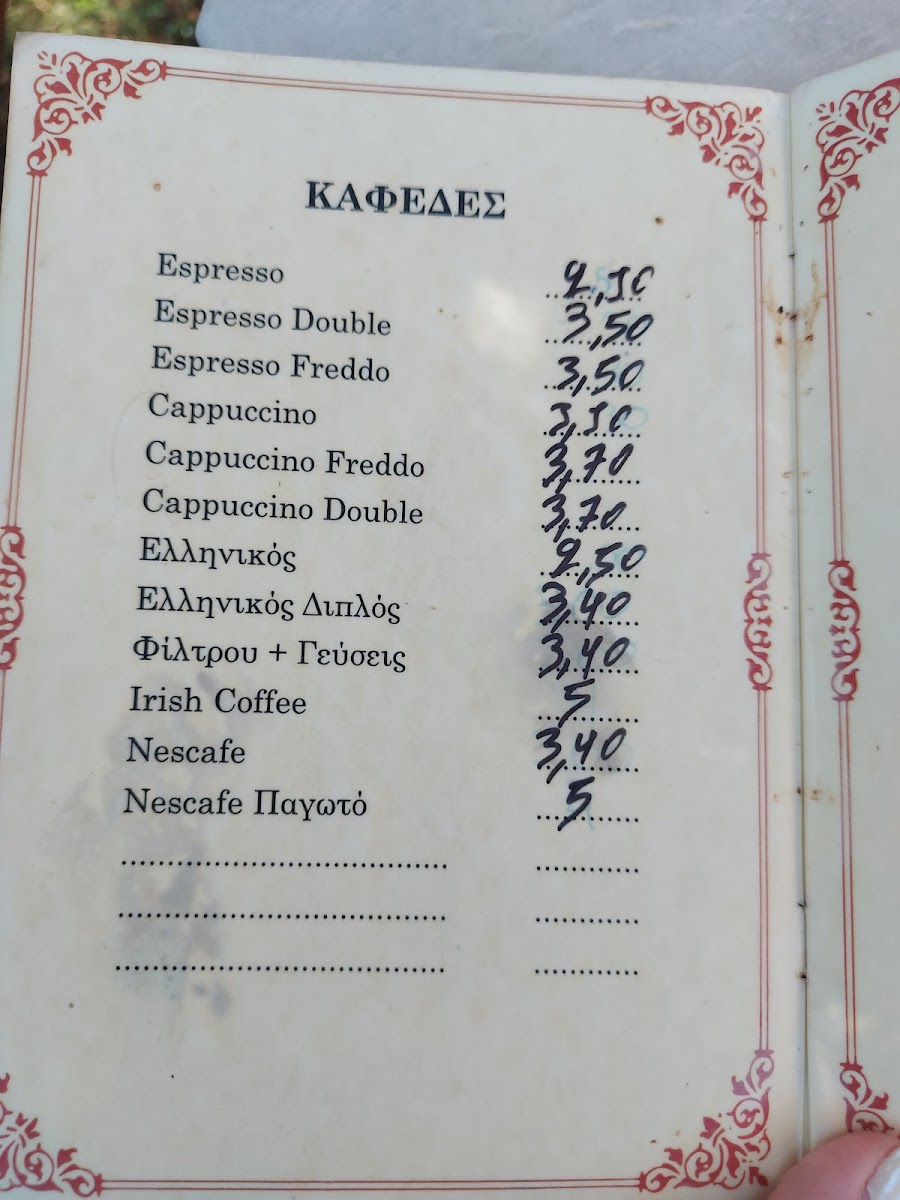 ΚΑΦΕΔΕΣ
Espresso
Espresso Double 3,50
Espresso Freddo 3,50
Cappuccino
Cappuccino Freddo 3,70
Cappuccino Double 3,70
Ελληνικός 2,50
Ελληνικός Διπλός 3,40
Φίλτρου + Γεύσεις 3,40
Irish Coffee 5
Nescafe 3,40
Nescafe Παγωτό 5